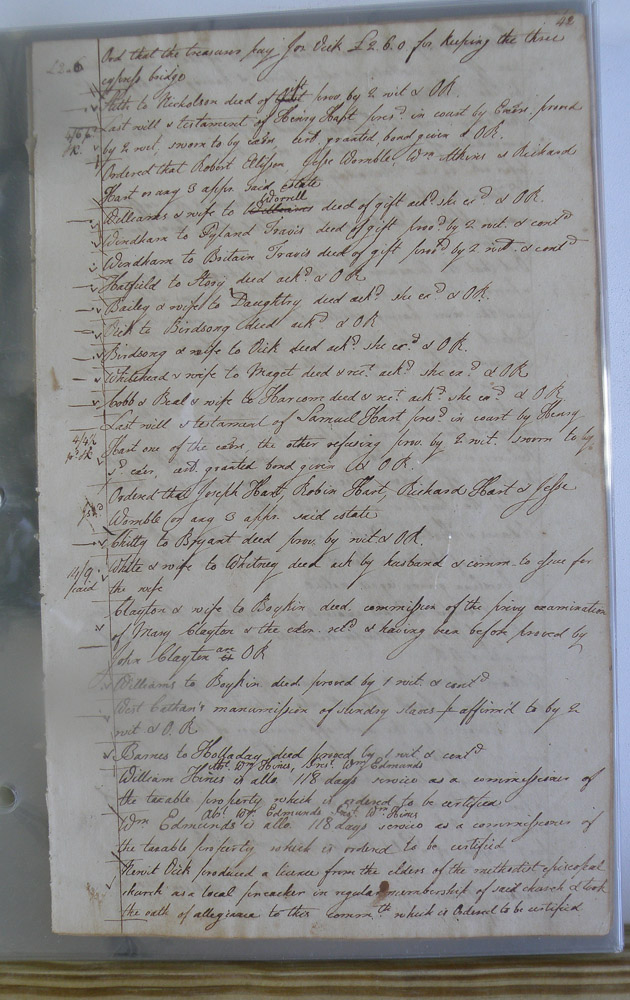 42
£2.6 Ord that the treasurer pay Jon Vick £2.6.0 for keeping the three
cypress bridge
to Nicholson deed of gift prov. by 2 wit & OR.
Last will & testament of Henry Hart pres.d in court by Exors, proved
by 2 wit. sworn to by exors. cert. granted bond given & OR.
Ordered that Robert Jesse Womble, Wm Atkins & Richard
Hart or any 3 appr. said estate
Worrell
Williams & wife to Williams deed of gift ack.d she ex.d & OR.
Windham to Pyland Travis deed of gift prov.d by 2 wit. & cont.d
Windham to Britain Travis deed of gift prov.d by 2 wit. & cont.d
Hatfield to Story deed ack.d & OR
Bailey & wife to Daughtry deed ack.d she ex.d & OR.
Vick to Birdsong deed ack.d & OR
Birdsong & wife to Vick deed ack.d she ex.d & OR.
Whitehead & wife to Maget deed & rec.t ack.d she ex.d & OR
Cobb & Beal & wife to Harcom deed & rec.t ack.d she ex.d & OR
Last will & testament of Samuel Hart pres.d in court by Henry
Hart one of the exors the other refusing prov. by 2 wit. sworn to by
s.d exer, cert. granted bond given & OR.
Ordered that Joseph Hart, Robin Hart, Richard Hart & Jesse
Womble or any 3 appr. said estate
Chitty to Bryant deed prov. by wit & OR.
White & wife to Whitney deed ack by husband & comm. to issue for
paid the wife
Clayton & wife to Boykin deed commission of the privy examination
of Mary Clayton & the exon. ret.d & having been before proved by
John Clayton are OR
Williams to Boykin deed proved by 1 wit. & cont.d
West manumission of sundry slaves affirmd to by 2
wit & OR.
Barnes to Holladay deed proved by 1 wit & cont.d
Abs.t Wm Hines, Pres.t Wm Edmunds
William Hines is allo. 118 days service as a commissioner of
the taxable property which is ordered to be certified
Abs.t Wm Edmunds Pres.t Wm Hines
Wm Edmunds is allo. 118 days service as a commissioner of
the taxable property which is ordered to be certified
Vick produced a licence from the elders of the methodist episcopal
church as a local preacher in regular membership of said church & took
the oath of allegiance to this comm.th which is Ordered to be certified